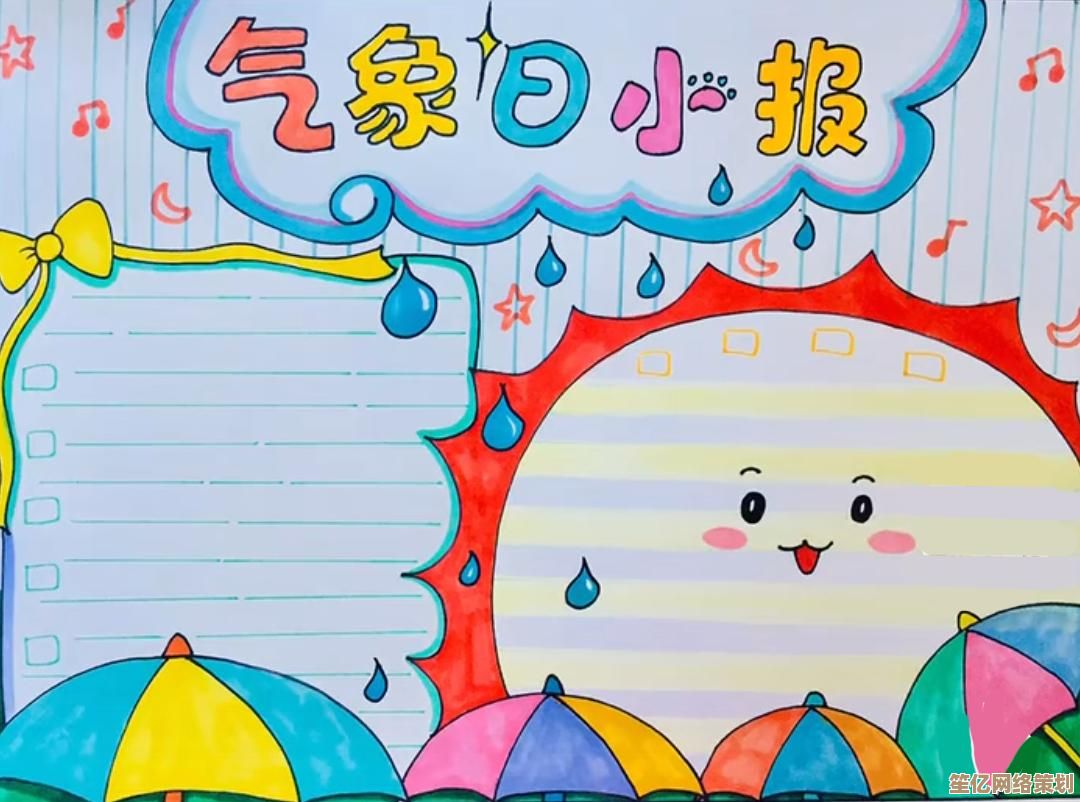 气象日小报
笙亿网络策划